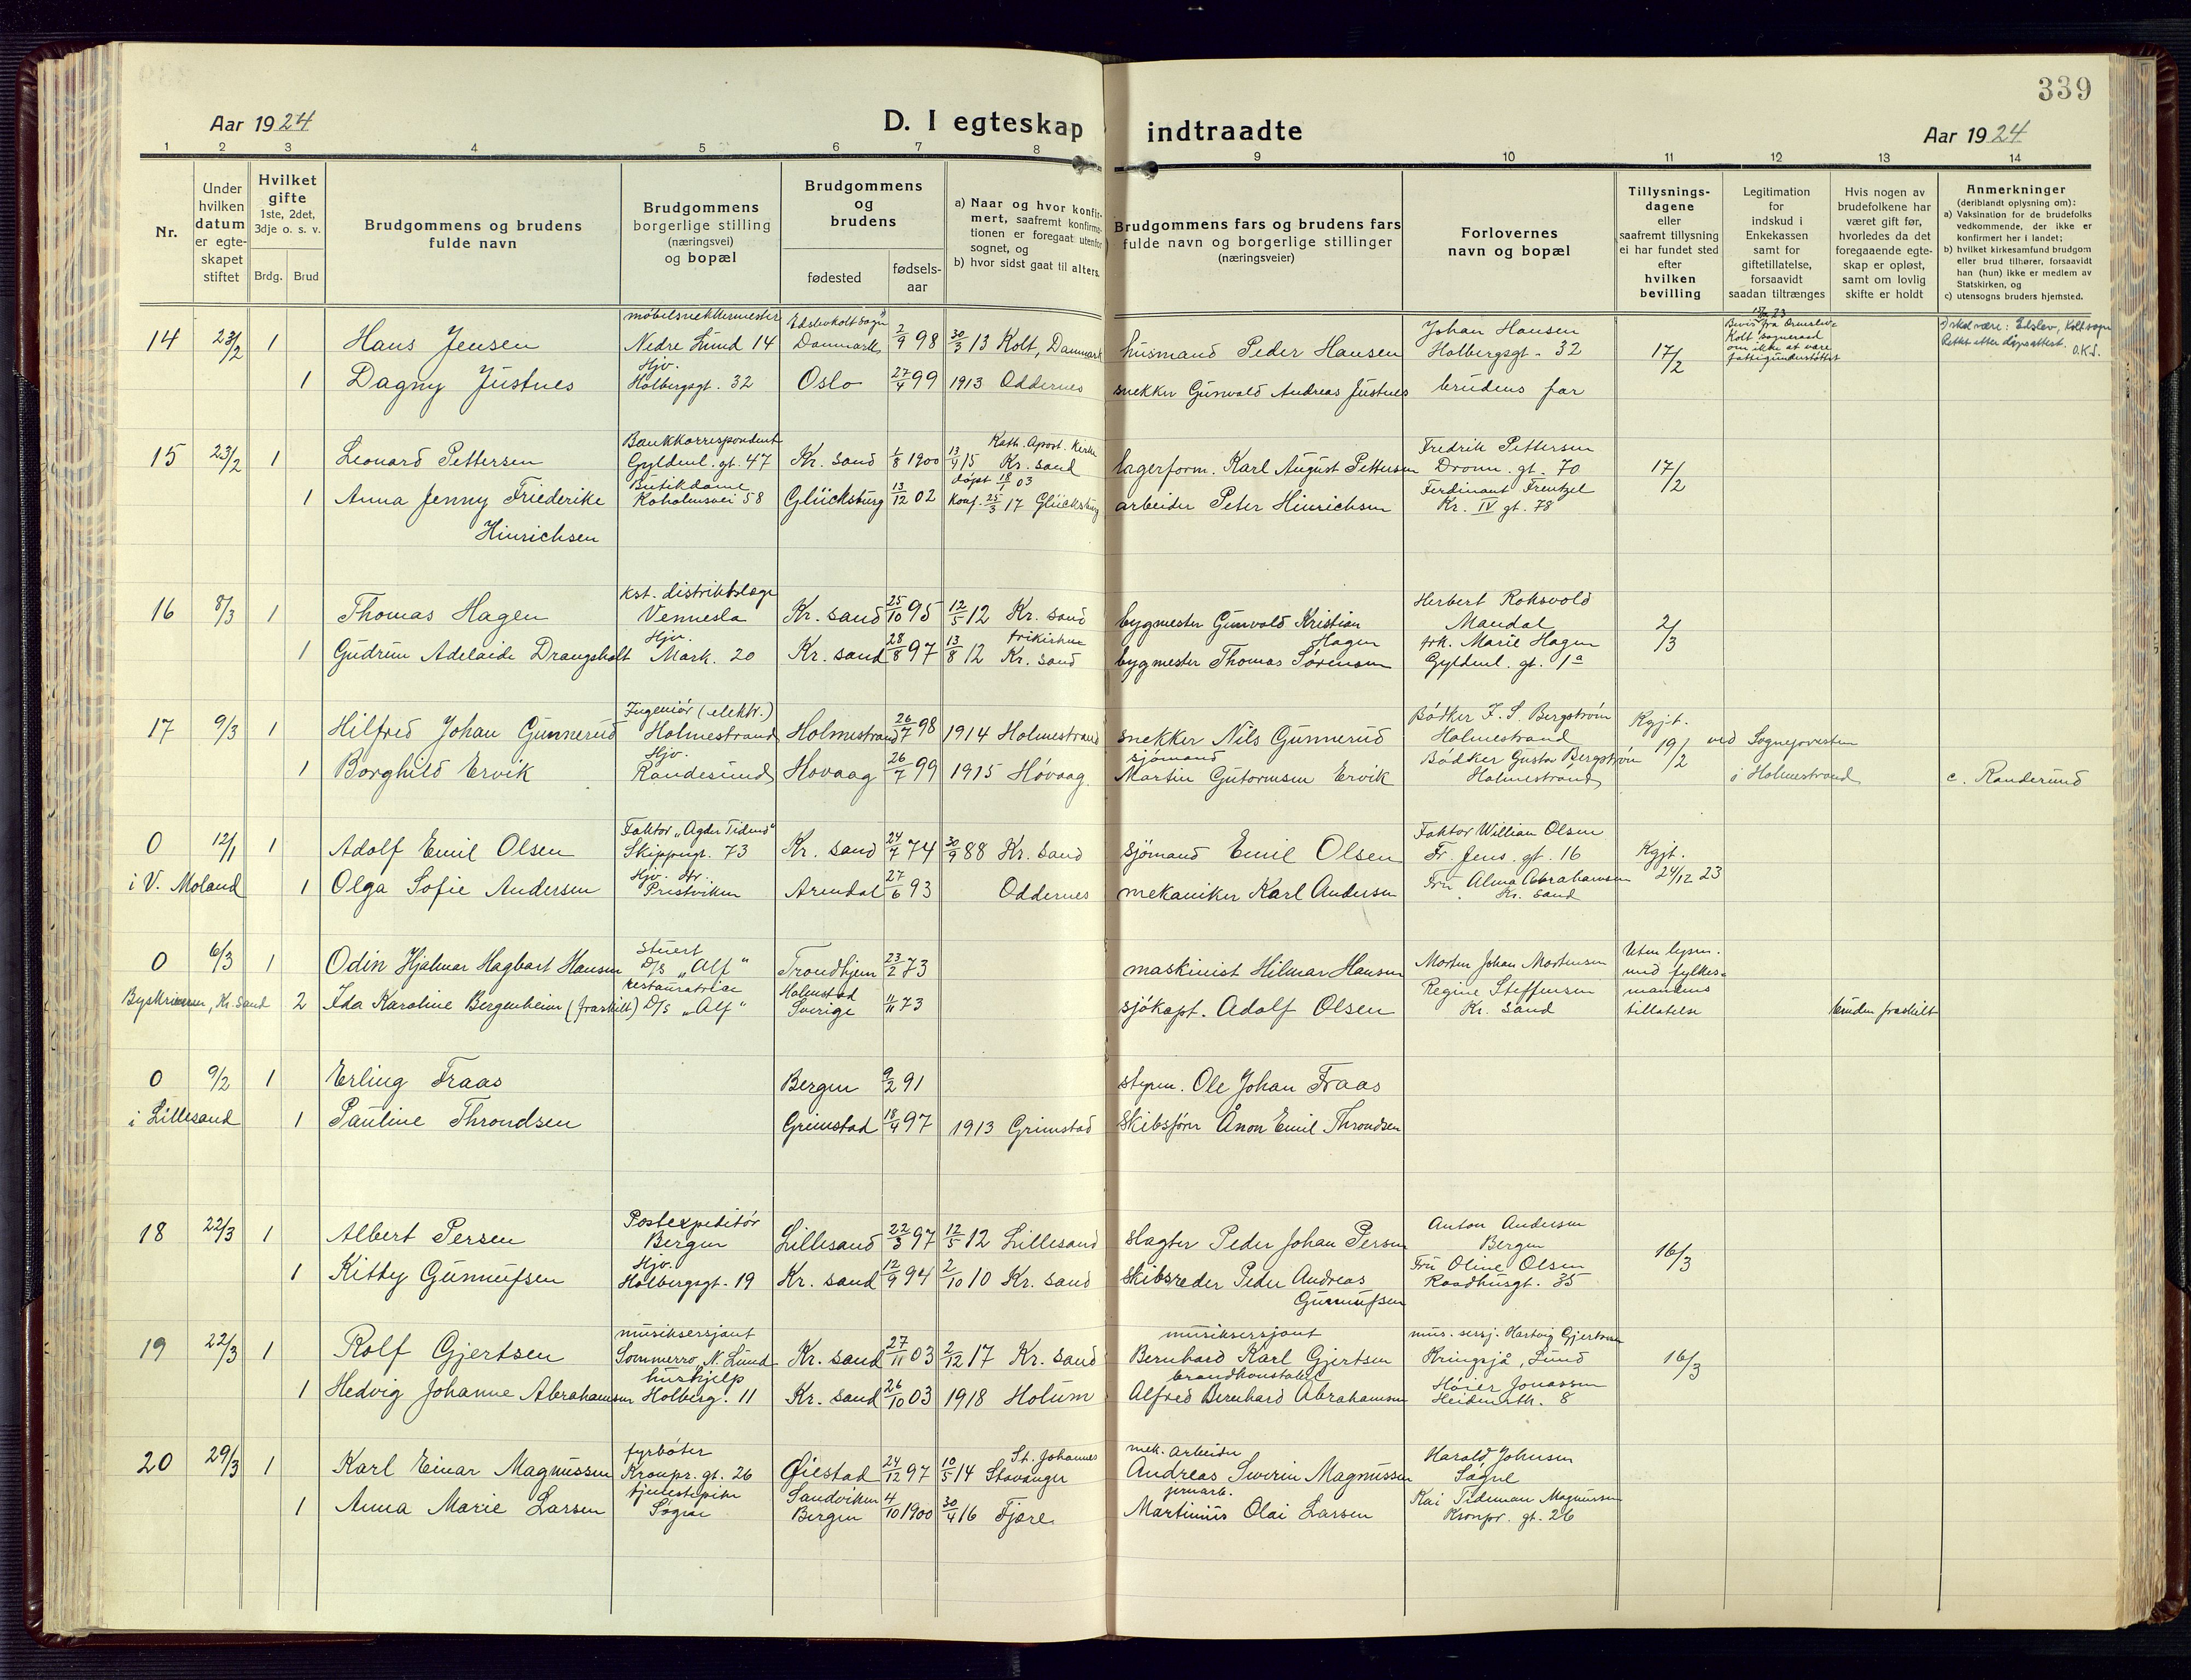 339
Aar 1924
D. I egteskap indtraadte
Aar 1924
1 2 3 4 5 6 7 8 9 10 11 12 13 14
Nr.
Under hvilken datum er egte-skapet stiftet
Hvilket gifte
1ste, 2det, 3dje o. s. v.
Brdg. Brud
Brudgommens og brudens fulde navn
Brudgommens borgerlige stilling (næringsvei) og bopæl
Brudgommens og brudens
fødested
fødsels-aar
a) Naar og hvor konfir-mert, saafremt konfirma-tionen er foregaat utenfor sognet, og
b) hvor sidst gaat til alters.
Brudgommens fars og brudens fars fulde navn og borgerlige stillinger (næringsveier)
Forlovernes navn og bopæl
Tillysnings-dagene eller saafremt tillysning ei har fundet sted efter hvilken bevilling
Legitimation for indskud i Enkekassen samt for giftetillatelse, forsaavidt saadan tiltrænges
Hvis nogen av brudefolkene har været gift før, hvorledes da det foregaaende egte-skap er opløst, samt om lovlig skifte er holdt
Anmerkninger
(deriblandt oplysning om):
a) Vaksination for de brudefolks vedkommende, der ikke er konfirmert her i landet;
b) hvilket kirkesamfund brudgom eller brud tilhører, forsaavidt han (hun) ikke er medlem av Statskirken, og
c) utensogns bruders hjemsted.
14 23/2 1 Hans Jensen Nedre Lund 14 Danmark 2/9 98 30/3 13 Kolt, Danmark husmand Peder Hansen Johan Hansen Holbergsgt. 32 17/2
1 Dagny Justnes Hjv. Holbergsgt. 32 Oslo 27/4 99 1913 Oddernes snekker Gunvald Andreas Justnes brudens far
15 23/2 1 Leonard Pettersen Bankkorrespondent Gyldenl. gt. 47 Kr. sand 1/8 1900 13/9 15 Kath. Apost. Kirke Kr. sand lagerform. Karl August Pettersen Fredrik Pettersen Dronn. gt. 70 17/2
1 Anna Jenny Friederike Hinrichsen Butikdame Koholmsvei 58 Glücksburg 13/12 02 døpt 18/1 03 Konf. 25/3 17 Glücksburg arbeider Peter Hinrichsen Ferdinant Frentzel Kr. IV gt. 78
16 8/3 1 Thomas Hagen kst. distriktslæge Vennesla Kr. sand 25/10 95 12/5 12 Kr. sand bygmester Gunvald Kristian Hagen Herbert Roksvold Mandal 2/3
1 Gudrun Adelaide Drangsholt Hjv. Mark. 20 Kr. sand 28/8 97 13/8 12 frikirken Kr. sand bygmester Thomas Sørensen frk. Marie Hagen Gyldenl. gt. 1a
17 9/3 1 Hilfred Johan Gunnerud Ingeniør (elektr.) Holmestrand Holmestrand 26/7 98 1914 Holmestrand snekker Nils Gunnerud Bødker F. S. Bergstrøm Holmestrand Kgjt. 19/2 ved Sognepresten
1 Borghild Ervik Hjv. Randesund Hovaag 26/7 99 1915 Høvaag sjømand Martin Gutormsen Ervik Bødker Gustav Bergstrøm Holmestrand i Holmestrand c. Randesund
0 12/1 1 Adolf Emil Olsen Faktor „Agder Tidend" Skippergt. 73 Kr. sand 24/7 74 30/9 88 Kr. sand sjømand Emil Olsen Faktor William Olsen Fr. Jens. gt. 16 Kgjt. 24/12 23
i V. Moland 1 Olga Sofie Andersen Hjv. Prestviken Arendal 27/6 93 Oddernes mekaniker Karl Andersen Fru Alma Abrahamsen Kr. sand
0 6/3 1 Odin Hjalmar Hagbart Hansen Stuert D/s „Alf" Trondhjem 23/2 73 maskinist Hilmar Hansen Morten Johan Mortensen Uten lysn. med fylkes-
Byskriveren, Kr. sand 2 Ida Karoline Bergenheim (fraskilt) D/s „Alf" Halmstad Sverige 11 73 sjøkapt. Adolf Olsen Regine Steffensen Kr. Sand mandens tillatelse bruden fraskilt
0 9/2 1 Erling Fraas Bergen 9/2 91 styrm. Ole Johan Fraas
i Lillesand 1 Pauline Throndsen Grimstad 18/4 97 1913 Grimstad Skibsfører Anon Emil Throndsen
18 22/3 1 Albert Persen Postexpeditør Bergen Lillesand 22/3 97 12/5 12 Lillesand slagter Peder Johan Persen Anton Andersen Bergen 16/3
1 Kitty Gunnufsen Hjv. Holbergsgt. 19 Kr. sand 12/9 94 2/10 10 Kr. sand Skibsreder Peder Andreas Gunnufsen Fru Oline Olsen Raadhusgt. 35
19 22/3 1 Rolf Gjertsen musiksersjant Sommerro, N. Lund Kr. sand 27/11 03 2/12 17 Kr. sand musiksersjant Bernhard Karl Gjertsen mus. sersj. Hartvig Gjertsen Kringsjå, Lund 16/3
1 Hedvig Johanne Abrahamsen hushjelp Holberg. 11 Kr. sand 26/10 03 1918 Holum brandkonstabel Alfred Bernhard Abrahamsen Høier Jonassen 8
20 29/3 1 Karl Einar Magnussen fyrbøter Kronpr. gt. 26 Øiestad 24/12 97 10/5 14 St. Johannes Stavanger mek. arbeider Andreas Severin Magnussen Harald Johnsen Søgne
1 Anna Marie Larsen tjenestepike Søgne Sandviken Bergen 4/10 1900 30/4 16 Fjære jernarb. Martinius Olai Larsen Kai Tideman Magnussen Kronpr. gt. 26